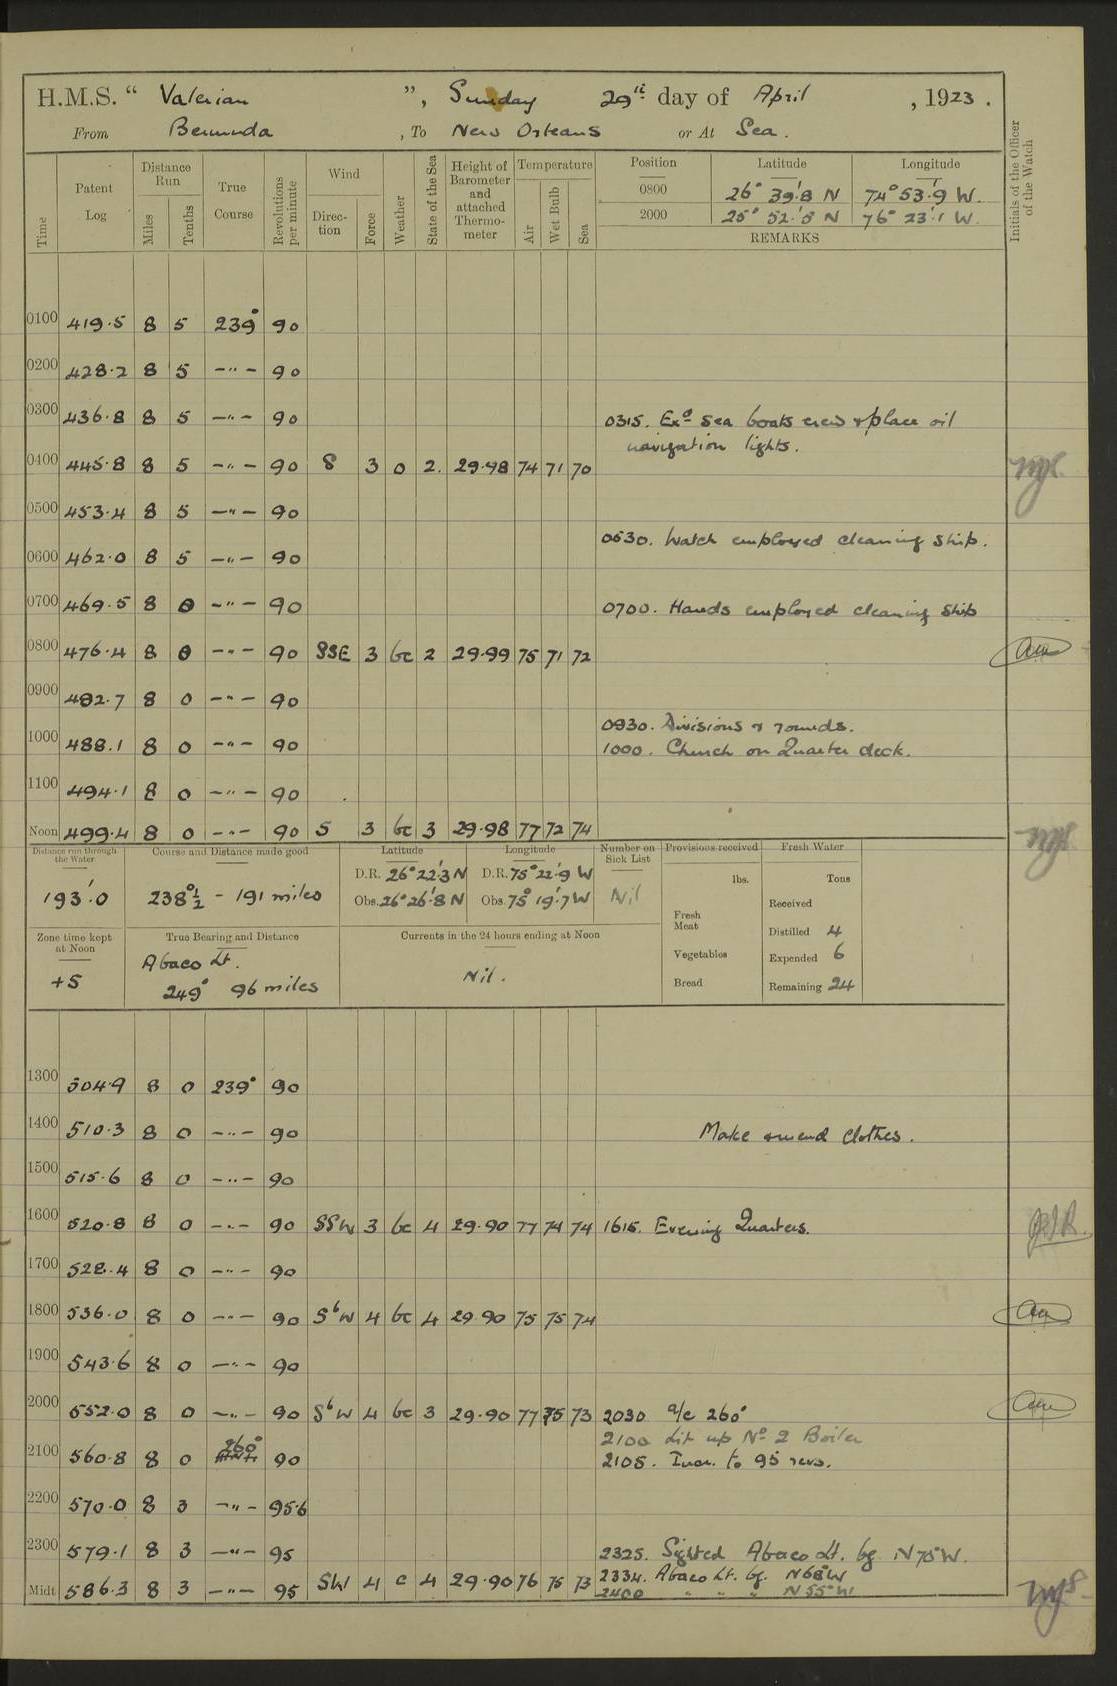 H.M.S. “ Valerian ”, Sunday 29th day of April , 1923 .
From Bermuda , To New Orleans or At Sea .
Time Patent Log Distance Run Miles Tenths True Course Revolutions per minute Wind Direc- tion Force Weather State of the Sea Height of Barometer and attached Thermo- meter Temperature Air Wet Bulb Sea Position Latitude Longitude Initials of the Officer of the Watch
0800 26° 39'.8 N 74° 53'.9 W.
2000 25° 52'.5 N 76° 23'.1 W.
REMARKS
0100 419.5 8 5 239° 90
0200 428.2 8 5 –"– 90
0300 436.8 8 5 –"– 90 0315. Exd sea boats crew & place oil
navigation lights.
0400 445.8 8 5 –"– 90 S 3 o 2. 29.98 74 71 70
0500 453.4 8 5 –"– 90
0530. Watch employed cleaning ship.
0600 462.0 8 5 –"– 90
0700 469.5 8 0 –"– 90 0700. Hands employed cleaning ship
0800 476.4 8 0 –"– 90 SSE 3 bc 2 29.99 75 71 72
0900 482.7 8 0 –"– 90
0930. Divisions & rounds.
1000 488.1 8 0 –"– 90 1000. Church on Quarter deck.
1100 494.1 8 0 –"– 90
Noon 499.4 8 0 –"– 90 S 3 bc 3 29.98 77 72 74
Distance run through the Water Course and Distance made good Latitude Longitude Number on Sick List Provisions received Fresh Water
D.R. 26° 22'.3 N D.R. 75° 22'.9 W lbs. Tons
193'.0 238°½ – 191 miles Obs. 26° 26'.8 N Obs. 75° 19'.7 W Nil Received
Fresh Meat Distilled 4
Zone time kept at Noon True Bearing and Distance Currents in the 24 hours ending at Noon
+5 Abaco Lt. Nil. Vegetables Expended 6
249° 96 miles Bread Remaining 24
1300 504.9 8 0 239° 90
1400 510.3 8 0 –"– 90 Make & mend clothes.
1500 515.6 8 0 –"– 90
1600 520.8 8 0 –"– 90 SSW 3 bc 4 29.90 77 74 74 1615. Evening Quarters.
1700 528.4 8 0 –"– 90
1800 536.0 8 0 –"– 90 SbW 4 bc 4 29.90 75 75 74
1900 543.6 8 0 –"– 90
2000 552.0 8 0 –"– 90 SbW 4 bc 3 29.90 77 75 73 2030 a/c 260°
2100 Lit up No 2 Boiler
2100 560.8 8 0 260° 90 2105. Incr. to 95 revs.
2200 570.0 8 3 –"– 95.6
2300 579.1 8 3 –"– 95 2325. Sighted Abaco Lt. bg. N75°W.
2334. Abaco Lt. bg. N68°W
Midt 586.3 8 3 –"– 95 SW 4 c 4 29.90 76 75 73 2400 " " " N55°W